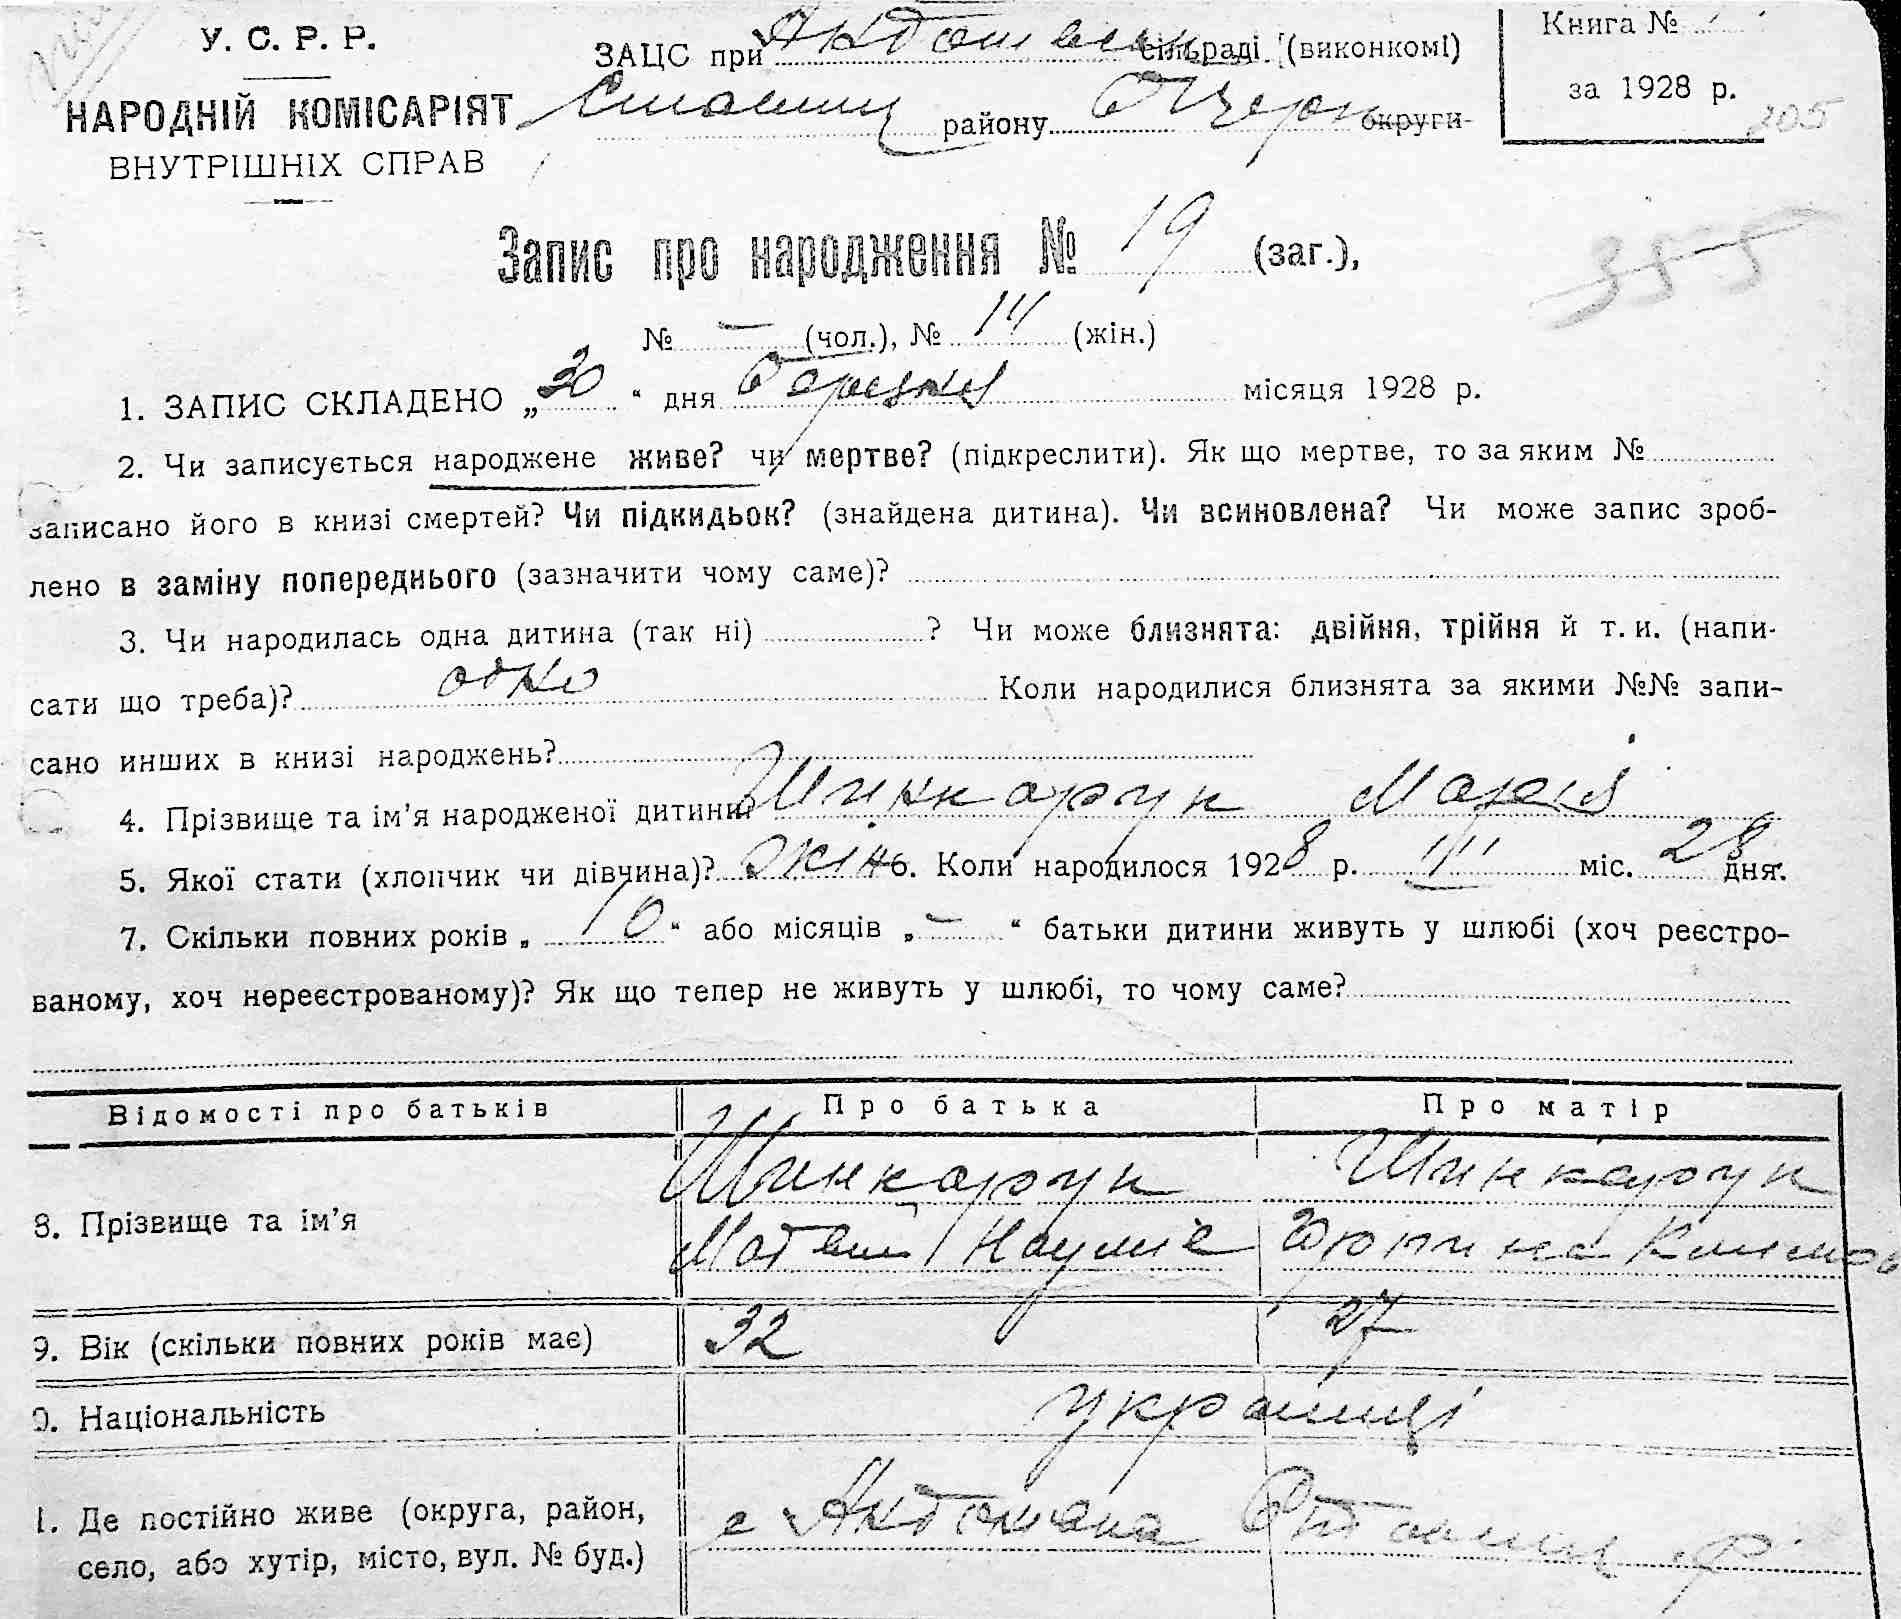 У. С. Р. Р.
НАРОДНІЙ КОМІСАРІЯТ
ВНУТРІШНІХ СПРАВ
ЗАЦС при сільраді (виконкомі)
району округи
Книга №
за 1928 р.
205
355
Запис про народження № 19 (заг.),
№ — (чол.), № 14 (жін.)
1. ЗАПИС СКЛАДЕНО „30“ дня Березня місяця 1928 р.
2. Чи записується народжене живе? чи мертве? (підкреслити). Як що мертве, то за яким №
записано його в книзі смертей? Чи підкидьок? (знайдена дитина). Чи всиновлена? Чи може запис зроб-
лено в заміну попереднього (зазначити чому саме)?
3. Чи народилась одна дитина (так ні) ? Чи може близнята: двійня, трійня й т. и. (напи-
сати що треба)? одно Коли народилися близнята за якими №№ запи-
сано инших в книзі народжень?
4. Прізвище та ім’я народженої дитини Шинкарук Марія
5. Якої стати (хлопчик чи дівчина)? жін 6. Коли народилося 1928 р. III міс. 28 дня.
7. Скільки повних років „10“ або місяців „—“ батьки дитини живуть у шлюбі (хоч реєстро-
ваному, хоч нереєстрованому)? Як що тепер не живуть у шлюбі, то чому саме?
Відомості про батьків Про батька Про матір
8. Прізвище та ім’я Шинкарук Шинкарук
9. Вік (скільки повних років має) 32 27
0. Національність українці
1. Де постійно живе (округа, район,
село, або хутір, місто, вул. № буд.)